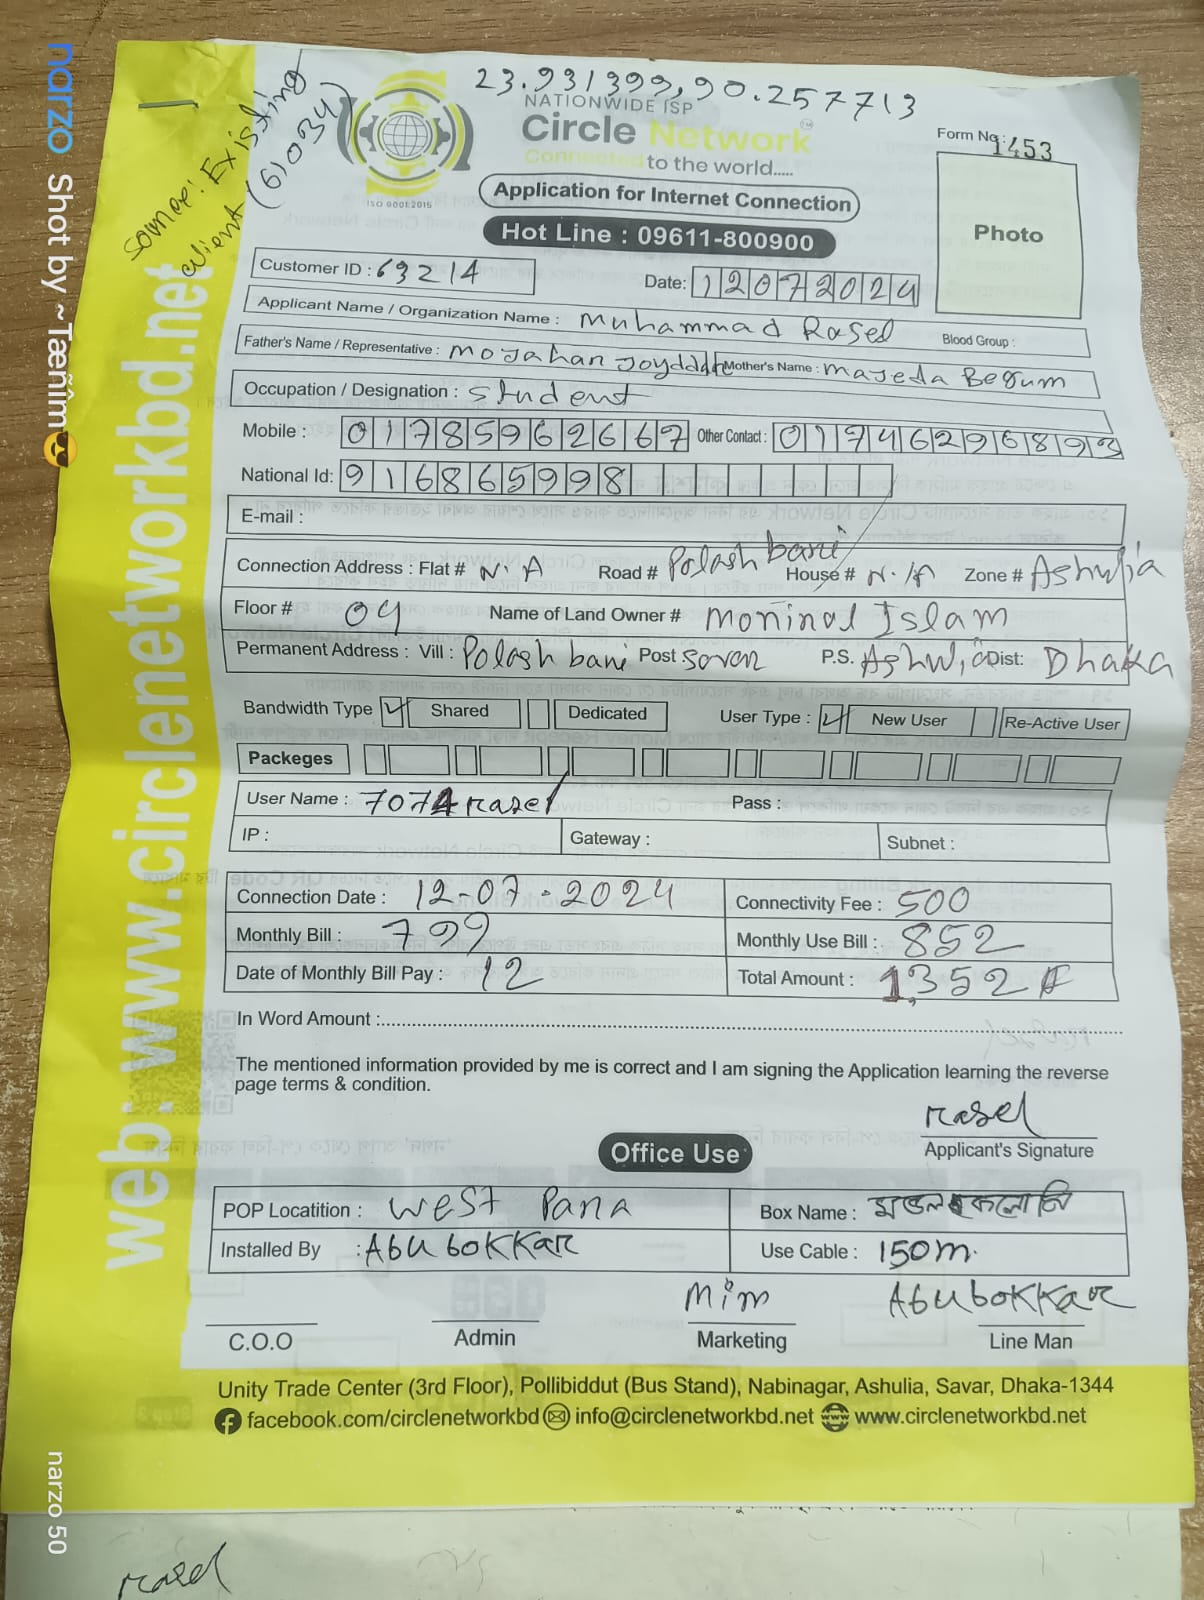 23.931399,90.257713
source: Existing
client (61034)
NATIONWIDE ISP
Circle Network
Connected to the world.....
ISO 9001:2015
Form No: 1453
Application for Internet Connection
Hot Line : 09611-800900
Photo
Customer ID : 63214 Date: 12072024
Applicant Name / Organization Name : Muhammad Rasel Blood Group :
Father's Name / Representative : Mojahan Mother's Name : Majeda Begum
Occupation / Designation : student
Mobile : 01785962667 Other Contact : 01746296893
National Id: 916865998
E-mail :
Connection Address : Flat # N.A Road # Polash bari House # N.A Zone # Ashulia
Floor # 04 Name of Land Owner # Moninol Islam
Permanent Address : Vill : Polash bari Post saver P.S. Ashulia Dist: Dhaka
Bandwidth Type Shared Dedicated User Type : New User Re-Active User
Packeges
User Name : 7074rasel Pass :
IP : Gateway : Subnet :
Connection Date : 12-07-2024 Connectivity Fee : 500
Monthly Bill : 799 Monthly Use Bill : 852
Date of Monthly Bill Pay : 12 Total Amount : 1,352
In Word Amount :
The mentioned information provided by me is correct and I am signing the Application learning the reverse
page terms & condition.
rasel
Applicant's Signature
Office Use
POP Locatition : West Para Box Name : মন্ডল কলোনি
Installed By : Abubokkar Use Cable : 150m.
Mim Abubokkar
C.O.O Admin Marketing Line Man
Unity Trade Center (3rd Floor), Pollibiddut (Bus Stand), Nabinagar, Ashulia, Savar, Dhaka-1344
facebook.com/circlenetworkbd info@circlenetworkbd.net www.circlenetworkbd.net
web: www.circlenetworkbd.net
rasel
narzo Shot by ~Tæñîm😎
narzo 50